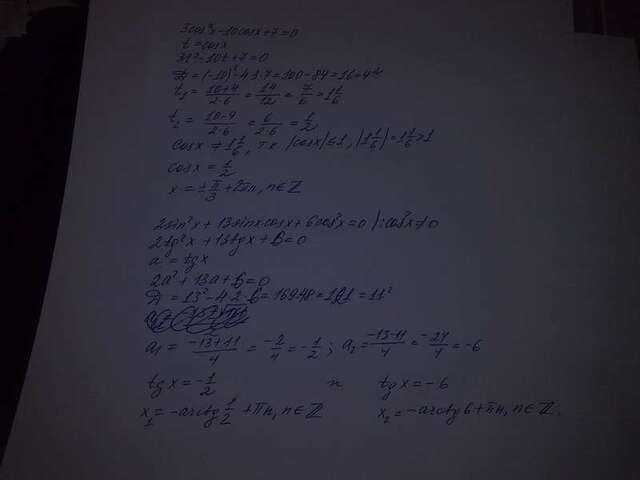 3cos²x-10cosx+7=0
t=cosx
3t²-10t+7=0
D=(-10)²-4·3·7=100-84=16=4²
t₁= (10+4)/(2·6) = 14/12 = 7/6 = 1 1/6
t₂= (10-4)/(2·6) = 6/(2·6) = 1/2
cosx≠1 1/6, т.к. |cosx|≤1, |1 1/6|=1 1/6>1
cosx= 1/2
x=± π/3 +2πn, n∈Z
2sin²x+13sinxcosx+6cos²x=0 |:cos²x≠0
2tg²x+13tgx+6=0
a=tgx
2a²+13a+6=0
D=13²-4·2·6=169-48=121=11²
a₁= (-13+11)/4 = -2/4 = -1/2; a₂= (-13-11)/4 = -24/4 = -6
tgx=-1/2 и tgx=-6
x₁=-arctg 1/2 +πn, n∈Z x₂=-arctg6+πn, n∈Z.